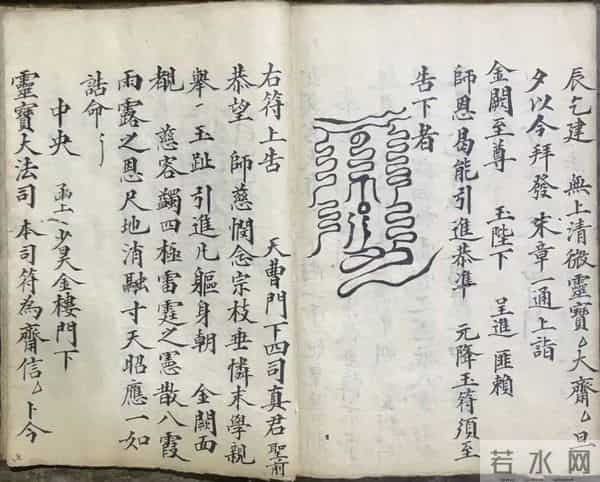 辰乞建 無上清微靈寶大齋旦
夕以今拜發 朱章一通上詣
金闕至尊 玉陛下 呈進匪賴
師恩曷能引進恭準 元降玉符須至
告下者
右符上告 天曹門下四司真君 聖前
恭望 師慈憫念宗枝垂憐末學親
舉玉趾引進凡軀身朝 金闕面
覩 慈容蠲四極雷霆之憲散八霞
雨露之恩尺地消融寸天昭應一如
誥命
中央 少昊金樓門下
靈寶大法司 本司符為齋信 卜今
若水网